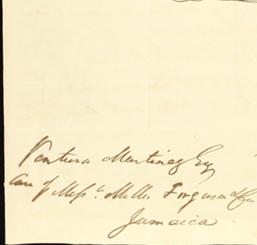 Ventura Martinez Esq
Care of Messrs. Miller Ferguson & Co
Jamaica